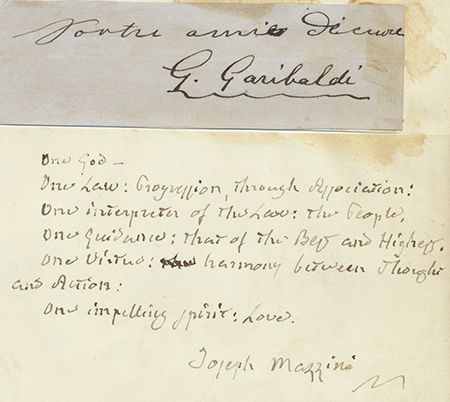 Votre ami Dévoué
G. Garibaldi
One God –
One Law: Progression, through Association:
One interpreter of the Law: the People.
One Guidance: that of the Best and Highest.
One Virtue: harmony between Thought
and Action:
One impelling spirit: Love.
Joseph Mazzini